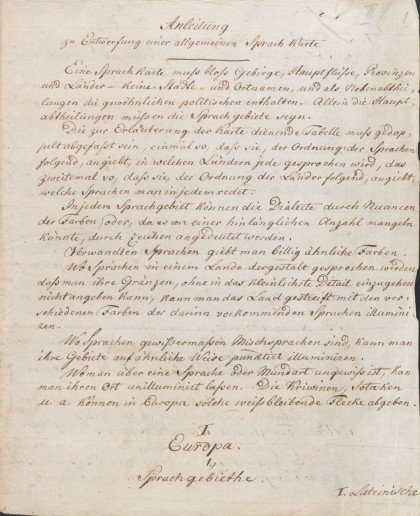 Anleitung
zu Entwerfung einer allgemeinen Sprach Karte
Eine Sprach Karte muss bloss Gebirge, Hauptflüsse, Provinzen
und Länder – keine Städte – und Ortnamen, und als Nebenabthei-
lungen die gewöhnlichen politischen enthalten. Allein die Haupt
abtheilungen müssen die Sprachgebiete seyn.
Die zur Erläuterung der Karte dienende Tabelle muss gedop-
pelt abgefasst sein, einmal so, daß sie, der Ordnung der Sprachen
folgend, angiebt, in welchen Ländern jede gesprochen wird, das
zweitemal so, daß sie der Ordnung der Länder folgend, angiebt,
welche Sprachen man in jedem redet.
In jedem Sprachgebiet können die Dialecte durch Nuancen
der Farben oder, da es an einer hinlänglichen Anzahl mangeln
könnte, durch Zeichen angedeutet werden.
Verwandten Sprachen giebt man billig ähnliche Farben.
Wo Sprachen in einem Lande dergestalt gesprochen werden
daß man ihre Gränzen, ohne in das kleinlichste Detail einzugehen
nicht angeben kann, kann man das Land gestreift mit den ver-
schiedenen Farben des darinn vorkommenden Sprachen illumini-
ren.
Wo Sprachen gewissermassen Mischsprachen sind, kann man
ihre Gebiete auf ähnliche Weise punktirt illuminiren.
Wo man über eine Sprache oder Mundart ungewiss ist, kann
man ihren Ort unilluminirt lassen. Die
u. a. können in Europa solche weißbleibende Flecke abgeben.
I.
Europa.
1,
Sprachgebiethe.
1. Lateinische